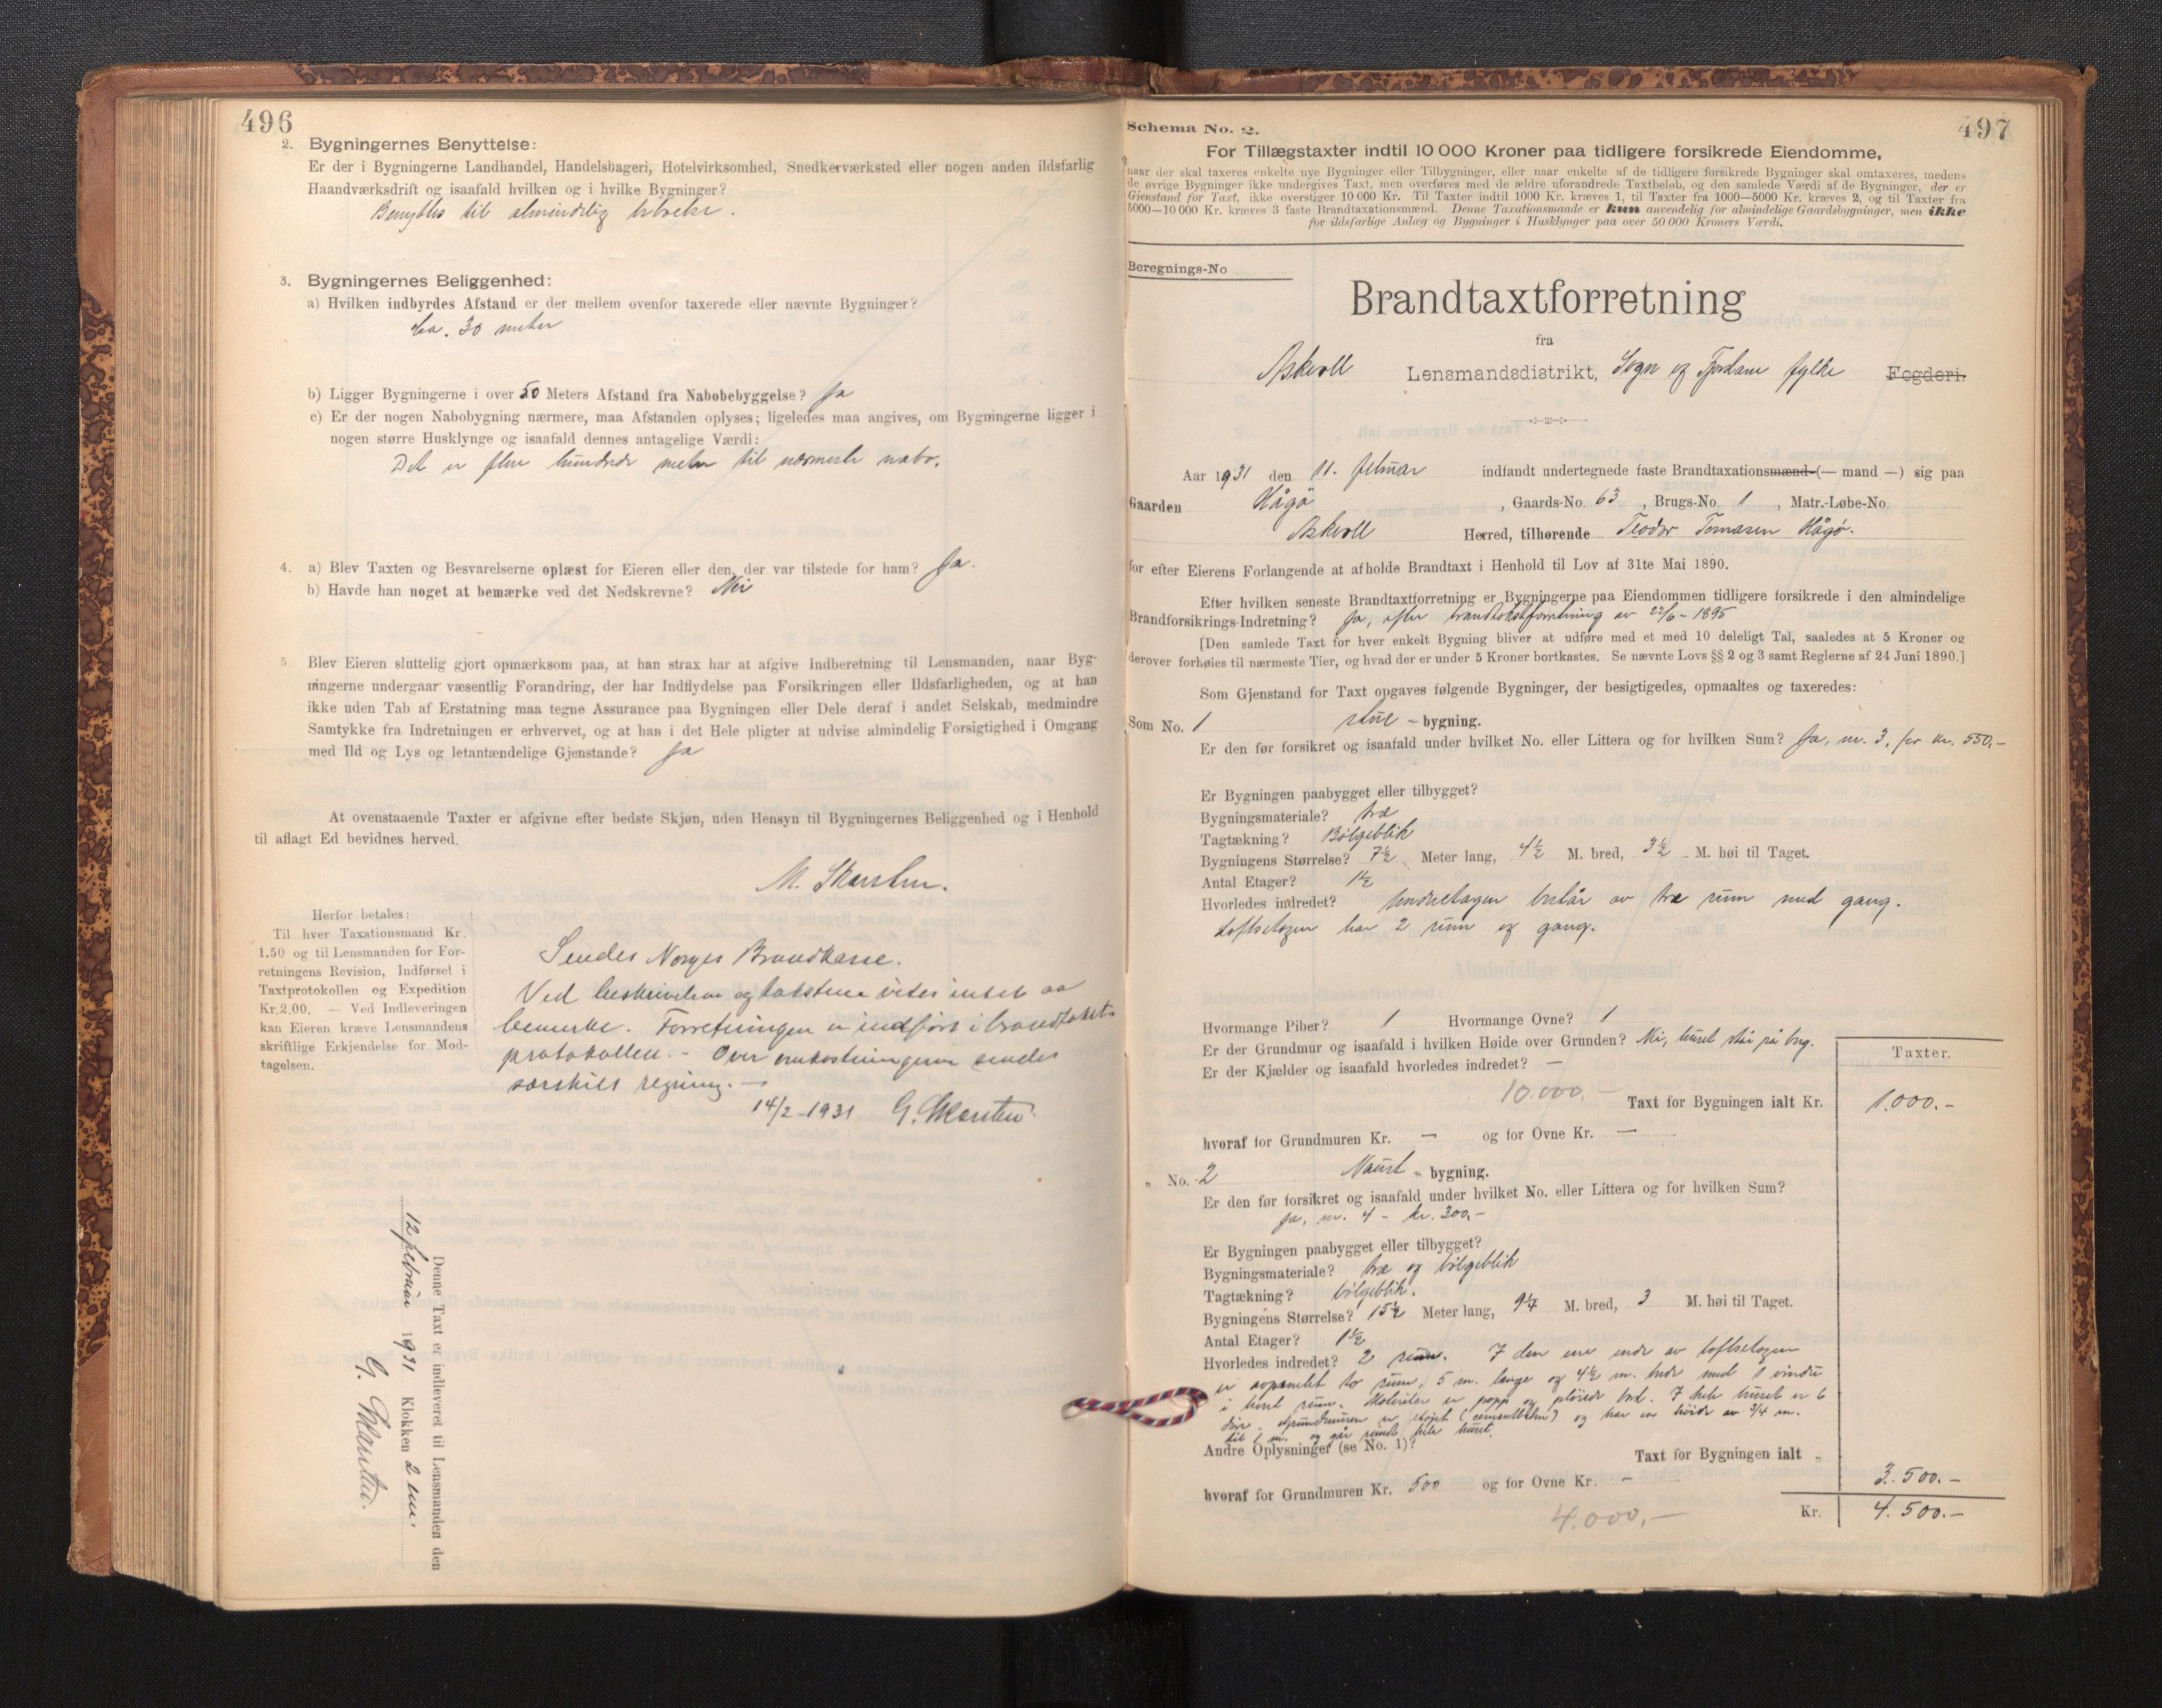 496
2. Bygningernes Benyttelse:
Er der i Bygningerne Landhandel, Handelsbageri, Hotelvirksomhed, Snedkerværksted eller nogen anden ildsfarlig
Haandværksdrift og isaafald hvilken og i hvilke Bygninger?
Benyttes til almindelig
3. Bygningernes Beliggenhed:
a) Hvilken indbyrdes Afstand er der mellem ovenfor taxerede eller nævnte Bygninger?
ca. 30 meter
b) Ligger Bygningerne i over 50 Meters Afstand fra Nabobebyggelse? Ja
c) Er der nogen Nabobygning nærmere, maa Afstanden oplyses; ligeledes maa angives, om Bygningerne ligger i
nogen større Husklynge og isaafald dennes antagelige Værdi:
Det er flere hundrede meter til nærmeste nabo.
4. a) Blev Taxten og Besvarelserne oplæst for Eieren eller den, der var tilstede for ham? Ja.
b) Havde han noget at bemærke ved det Nedskrevne? Nei
5. Blev Eieren sluttelig gjort opmærksom paa, at han strax har at afgive Indberetning til Lensmanden, naar Byg-
ningerne undergaar væsentlig Forandring, der har Indflydelse paa Forsikringen eller Ildsfarligheden, og at han
ikke uden Tab af Erstatning maa tegne Assurance paa Bygningen eller Dele deraf i andet Selskab, medmindre
Samtykke fra Indretningen er erhvervet, og at han i det Hele pligter at udvise almindelig Forsigtighed i Omgang
med Ild og Lys og letantændelige Gjenstande? Ja
At ovenstaaende Taxter er afgivne efter bedste Skjøn, uden Hensyn til Bygningernes Beliggenhed og i Henhold
til aflagt Ed bevidnes herved.
M. Skarsten.
Herfor betales:
Til hver Taxationsmand Kr.
1.50 og til Lensmanden for For-
retningens Revision, Indførsel i
Taxtprotokollen og Expedition
Kr. 2.00. — Ved Indleveringen
kan Eieren kræve Lensmandens
skriftlige Erkjendelse for Mod-
tagelsen.
Sendes Norges Brandkasse.
Ved beskrivelsen og takstene vites intet aa
bemerke. Forretningen er indført i brandtakst-
protokollen. - Over omkostningene sendes
særskilt regning. —
14/2-1931 G. Skarsten
Denne Taxt er indleveret til Lensmanden den
12 februar 1931 Klokken 2 em.
G. Skarsten.
497
Schema No. 2.
For Tillægstaxter indtil 10 000 Kroner paa tidligere forsikrede Eiendomme,
naar der skal taxeres enkelte nye Bygninger eller Tilbygninger, eller naar enkelte af de tidligere forsikrede Bygninger skal omtaxeres, medens
de øvrige Bygninger ikke undergives Taxt, men overføres med de ældre uforandrede Taxtbeløb, og den samlede Værdi af de Bygninger, der er
Gjenstand for Taxt, ikke overstiger 10 000 Kr. Til Taxter indtil 1000 Kr. kræves 1, til Taxter fra 1000—5000 Kr. kræves 2, og til Taxter fra
5000—10 000 Kr. kræves 3 faste Brandtaxationsmænd. Denne Taxationsmaade er kun anvendelig for almindelige Gaardsbygninger, men ikke
for ildsfarlige Anlæg og Bygninger i Husklynger paa over 50 000 Kroners Værdi.
Beregnings-No
Brandtaxtforretning
fra
Askvoll Lensmandsdistrikt, Sogn og Fjordane fylke Fogderi.
Aar 1931 den 11. februar indfandt undertegnede faste Brandtaxationsmænd (— mand —) sig paa
Gaarden Hågø, Gaards-No. 63, Brugs-No. 1, Matr.-Løbe-No.
Askvoll Herred, tilhørende Teodor Tomasen Hågø.
for efter Eierens Forlangende at afholde Brandtaxt i Henhold til Lov af 31te Mai 1890.
Efter hvilken seneste Brandtaxtforretning er Bygningerne paa Eiendommen tidligere forsikrede i den almindelige
Brandforsikrings-Indretning? Ja, efter brandtakstforretning av 22/6-1895
[Den samlede Taxt for hver enkelt Bygning bliver at udføre med et med 10 deleligt Tal, saaledes at 5 Kroner og
derover forhøies til nærmeste Tier, og hvad der er under 5 Kroner bortkastes. Se nævnte Lovs §§ 2 og 3 samt Reglerne af 24 Juni 1890.]
Som Gjenstand for Taxt opgaves følgende Bygninger, der besigtigedes, opmaaltes og taxeredes:
Som No. 1 stue - bygning.
Er den før forsikret og isaafald under hvilket No. eller Littera og for hvilken Sum? Ja, nr. 3, for kr. 550,-
Er Bygningen paabygget eller tilbygget?
Bygningsmateriale? træ
Tagtækning? Bølgeblik
Bygningens Størrelse? 7½ Meter lang, 4½ M. bred, 3½ M. høi til Taget.
Antal Etager? 1½
Hvorledes indredet? Underetagen består av tre rum med gang.
Loftsetagen har 2 rum og gang.
Hvormange Piber? 1 Hvormange Ovne? 1
Er der Grundmur og isaafald i hvilken Høide over Grunden? Nei, huset står på
Er der Kjælder og isaafald hvorledes indredet? —
Taxter.
10.000,- Taxt for Bygningen ialt Kr. 1.000.-
hvoraf for Grundmuren Kr. — og for Ovne Kr. —
" No. 2 Naust - bygning.
Er den før forsikret og isaafald under hvilket No. eller Littera og for hvilken Sum?
Ja, nr. 4 - kr. 300,-
Er Bygningen paabygget eller tilbygget?
Bygningsmateriale? træ og bølgeblik
Tagtækning? bølgeblik.
Bygningens Størrelse? 15½ Meter lang, 9¼ M. bred, 3 M. høi til Taget.
Antal Etager? 1½
Hvorledes indredet? 2 rum. I den ene ende av loftsetagen
er avpanelet to rum, 5 m. lange og 4½ m. brede med 1 vindu
i hvert rum. Materialer er papp og pløiede bord. I hele huset er 6
døre. Grundmuren er støpt ( ) og har en høide av 3/4 m.
til 1 m. og går rundt hele huset.
Andre Oplysninger (se No. 1)?
Taxt for Bygningen ialt " 3.500.-
hvoraf for Grundmuren Kr. 500 og for Ovne Kr. -
4.000,- Kr. 4.500.-